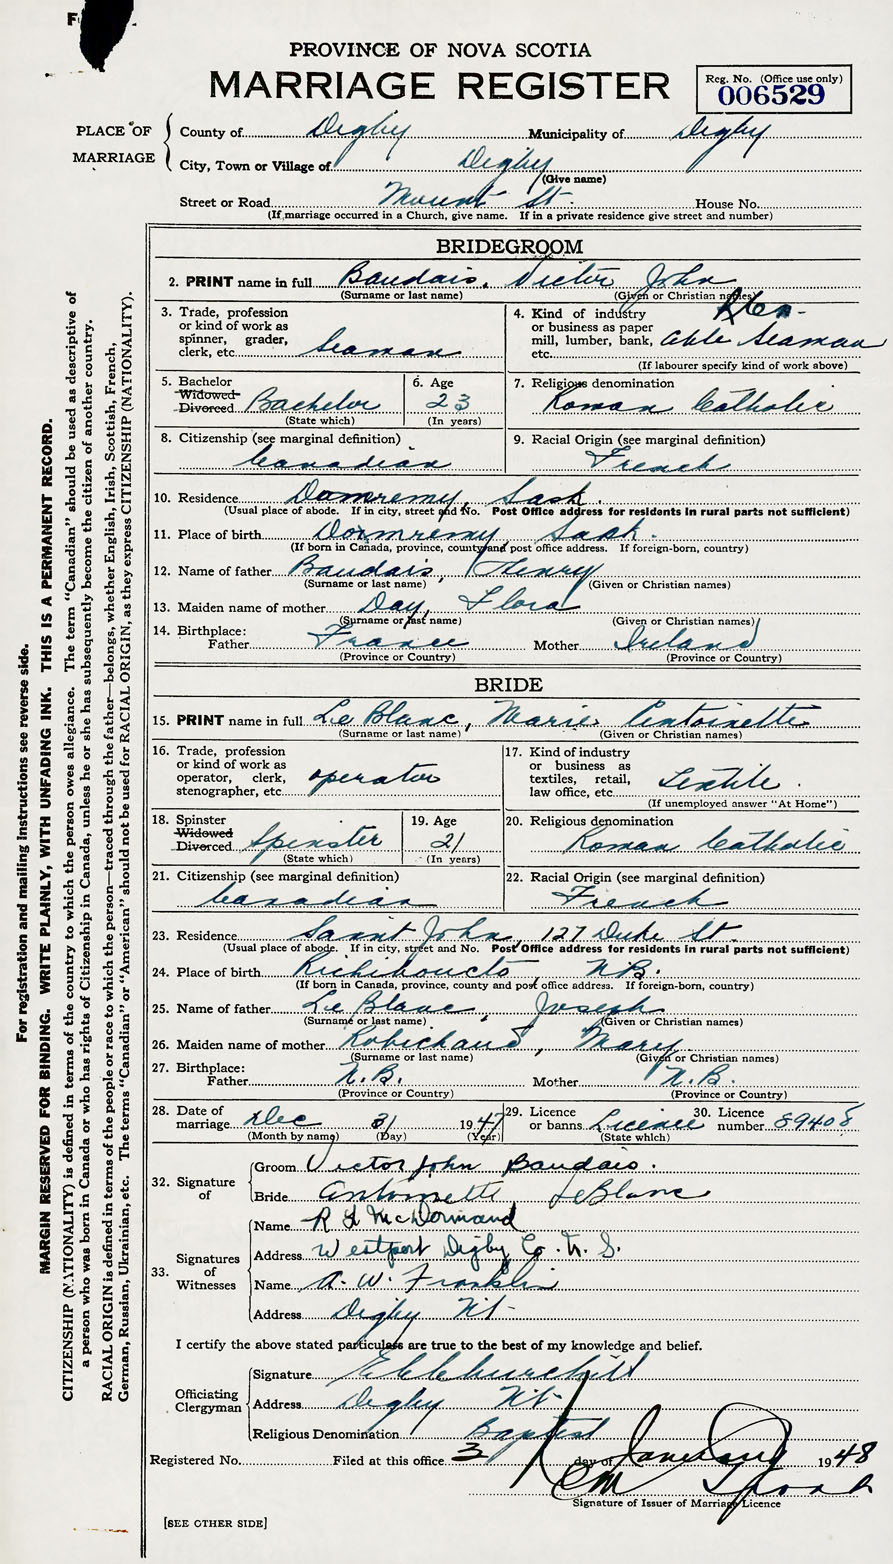 PROVINCE OF NOVA SCOTIA
MARRIAGE REGISTER
Reg. No. (Office use only)
006529
PLACE OF MARRIAGE
County of Digby Municipality of Digby
City, Town or Village of Digby
(Give name)
Street or Road Mount St. House No.
(If marriage occurred in a Church, give name. If in a private residence give street and number)
BRIDEGROOM
2. PRINT name in full Baudais, Victor John
(Surname or last name) (Given or Christian names)
3. Trade, profession or kind of work as spinner, grader, clerk, etc. Seaman
4. Kind of industry or business as paper mill, lumber, bank, etc. able Seaman
(If labourer specify kind of work above)
5. Bachelor Widowed Divorced Bachelor
(State which)
6. Age 23
(In years)
7. Religious denomination Roman Catholic
8. Citizenship (see marginal definition) Canadian
9. Racial Origin (see marginal definition) French
10. Residence Domremy, Sask.
(Usual place of abode. If in city, street and No. Post Office address for residents in rural parts not sufficient)
11. Place of birth Domremy, Sask.
(If born in Canada, province, county and post office address. If foreign-born, country)
12. Name of father Baudais, Henry
(Surname or last name) (Given or Christian names)
13. Maiden name of mother Day, Flora
(Surname or last name) (Given or Christian names)
14. Birthplace: Father France Mother Ireland
(Province or Country) (Province or Country)
BRIDE
15. PRINT name in full Le Blanc, Marie Antoinette
(Surname or last name) (Given or Christian names)
16. Trade, profession or kind of work as operator, clerk, stenographer, etc. operator
17. Kind of industry or business as textiles, retail, law office, etc. Textile.
(If unemployed answer "At Home")
18. Spinster Widowed Divorced Spinster
(State which)
19. Age 21
(In years)
20. Religious denomination Roman Catholic
21. Citizenship (see marginal definition) Canadian
22. Racial Origin (see marginal definition) French
23. Residence Saint John, 127 Duke St.
(Usual place of abode. If in city, street and No. Post Office address for residents in rural parts not sufficient)
24. Place of birth Richiboucto, N.B.
(If born in Canada, province, county and post office address. If foreign-born, country)
25. Name of father Le Blanc, Joseph
(Surname or last name) (Given or Christian names)
26. Maiden name of mother Robichaud, Mary
(Surname or last name) (Given or Christian names)
27. Birthplace: Father N.B. Mother N.B.
(Province or Country) (Province or Country)
28. Date of marriage Dec 31 1947
(Month by name) (Day) (Year)
29. Licence or banns Licence
(State which)
30. Licence number 89408
32. Signature of
Groom Victor John Baudais.
Bride Antoinette LeBlanc
33. Signatures of Witnesses
Name R L McDormand
Address Westport Digby Co. N.S.
Name A. W. Franklin
Address Digby N.S.
I certify the above stated particulars are true to the best of my knowledge and belief.
Officiating Clergyman
Signature
Address Digby N.S.
Religious Denomination Baptist
Registered No. Filed at this office 3 day of January 1948
Signature of Issuer of Marriage Licence
[SEE OTHER SIDE]
For registration and mailing instructions see reverse side.
MARGIN RESERVED FOR BINDING. WRITE PLAINLY, WITH UNFADING INK. THIS IS A PERMANENT RECORD.
CITIZENSHIP (NATIONALITY) is defined in terms of the country to which the person owes allegiance. The term "Canadian" should be used as descriptive of
a person who was born in Canada or who has rights of Citizenship in Canada, unless he or she has subsequently become the citizen of another country.
RACIAL ORIGIN is defined in terms of the people or race to which the person—traced through the father—belongs, whether English, Irish, Scottish, French,
German, Russian, Ukrainian, etc. The terms "Canadian" or "American" should not be used for RACIAL ORIGIN, as they express CITIZENSHIP (NATIONALITY).